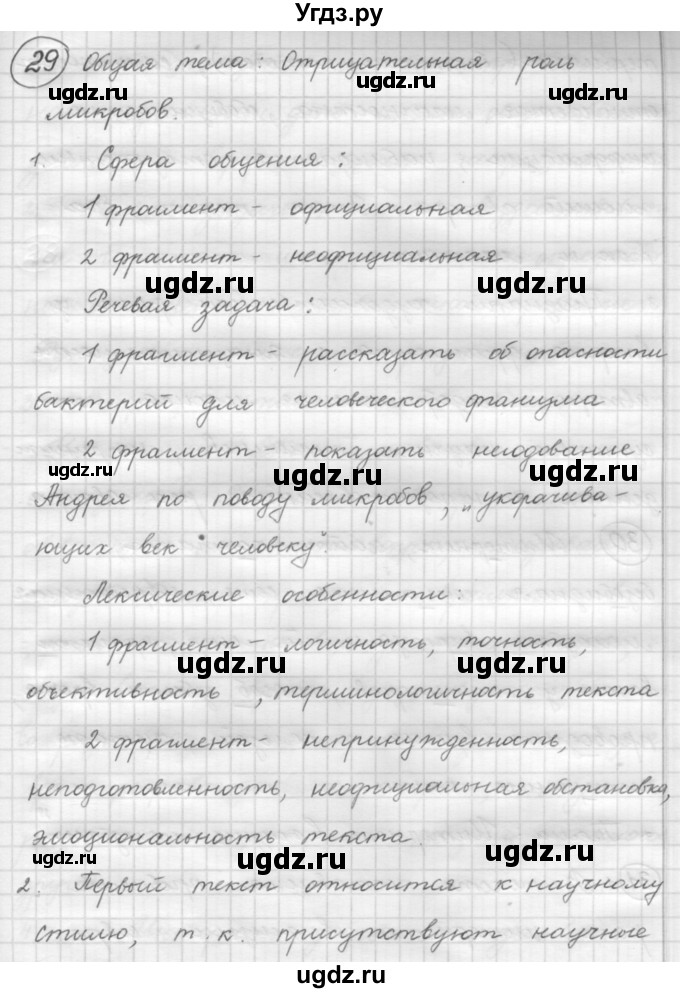 Угдз.ру
29 Общая тема: Отрицательная роль
ugdz.ru ugdz.ru ugdz.ru
микробов.
1. Сфера общения:
1 фрагмент - официальная
ugdz.ru ugdz.ru
2 фрагмент - неофициальная
ugdz.ru ugdz.ru
Речевая задача:
1 фрагмент - рассказать об опасности
бактерий для человеческого
ugdz.ru ugdz.ru
2 фрагмент - показать негодование
ugdz.ru ugdz.ru ugdz.ru
Андрея по поводу микробов, „укорачива-
ющих век человеку".
ugdz.ru ugdz.ru
Лексические особенности:
1 фрагмент - логичность, точность,
ugdz.ru ugdz.ru
объективность, терминологичность текста
ugdz.ru ugdz.ru
2 фрагмент - непринужденность,
неподготовленность, неофициальная обстановка,
ugdz.ru ugdz.ru
эмоциональность текста.
ugdz.ru ugdz.ru ugdz.ru
2. Первый текст относится к научному
стилю, т.к. присутствуют научные
ugdz.ru ugdz.ru
ugdz.ru